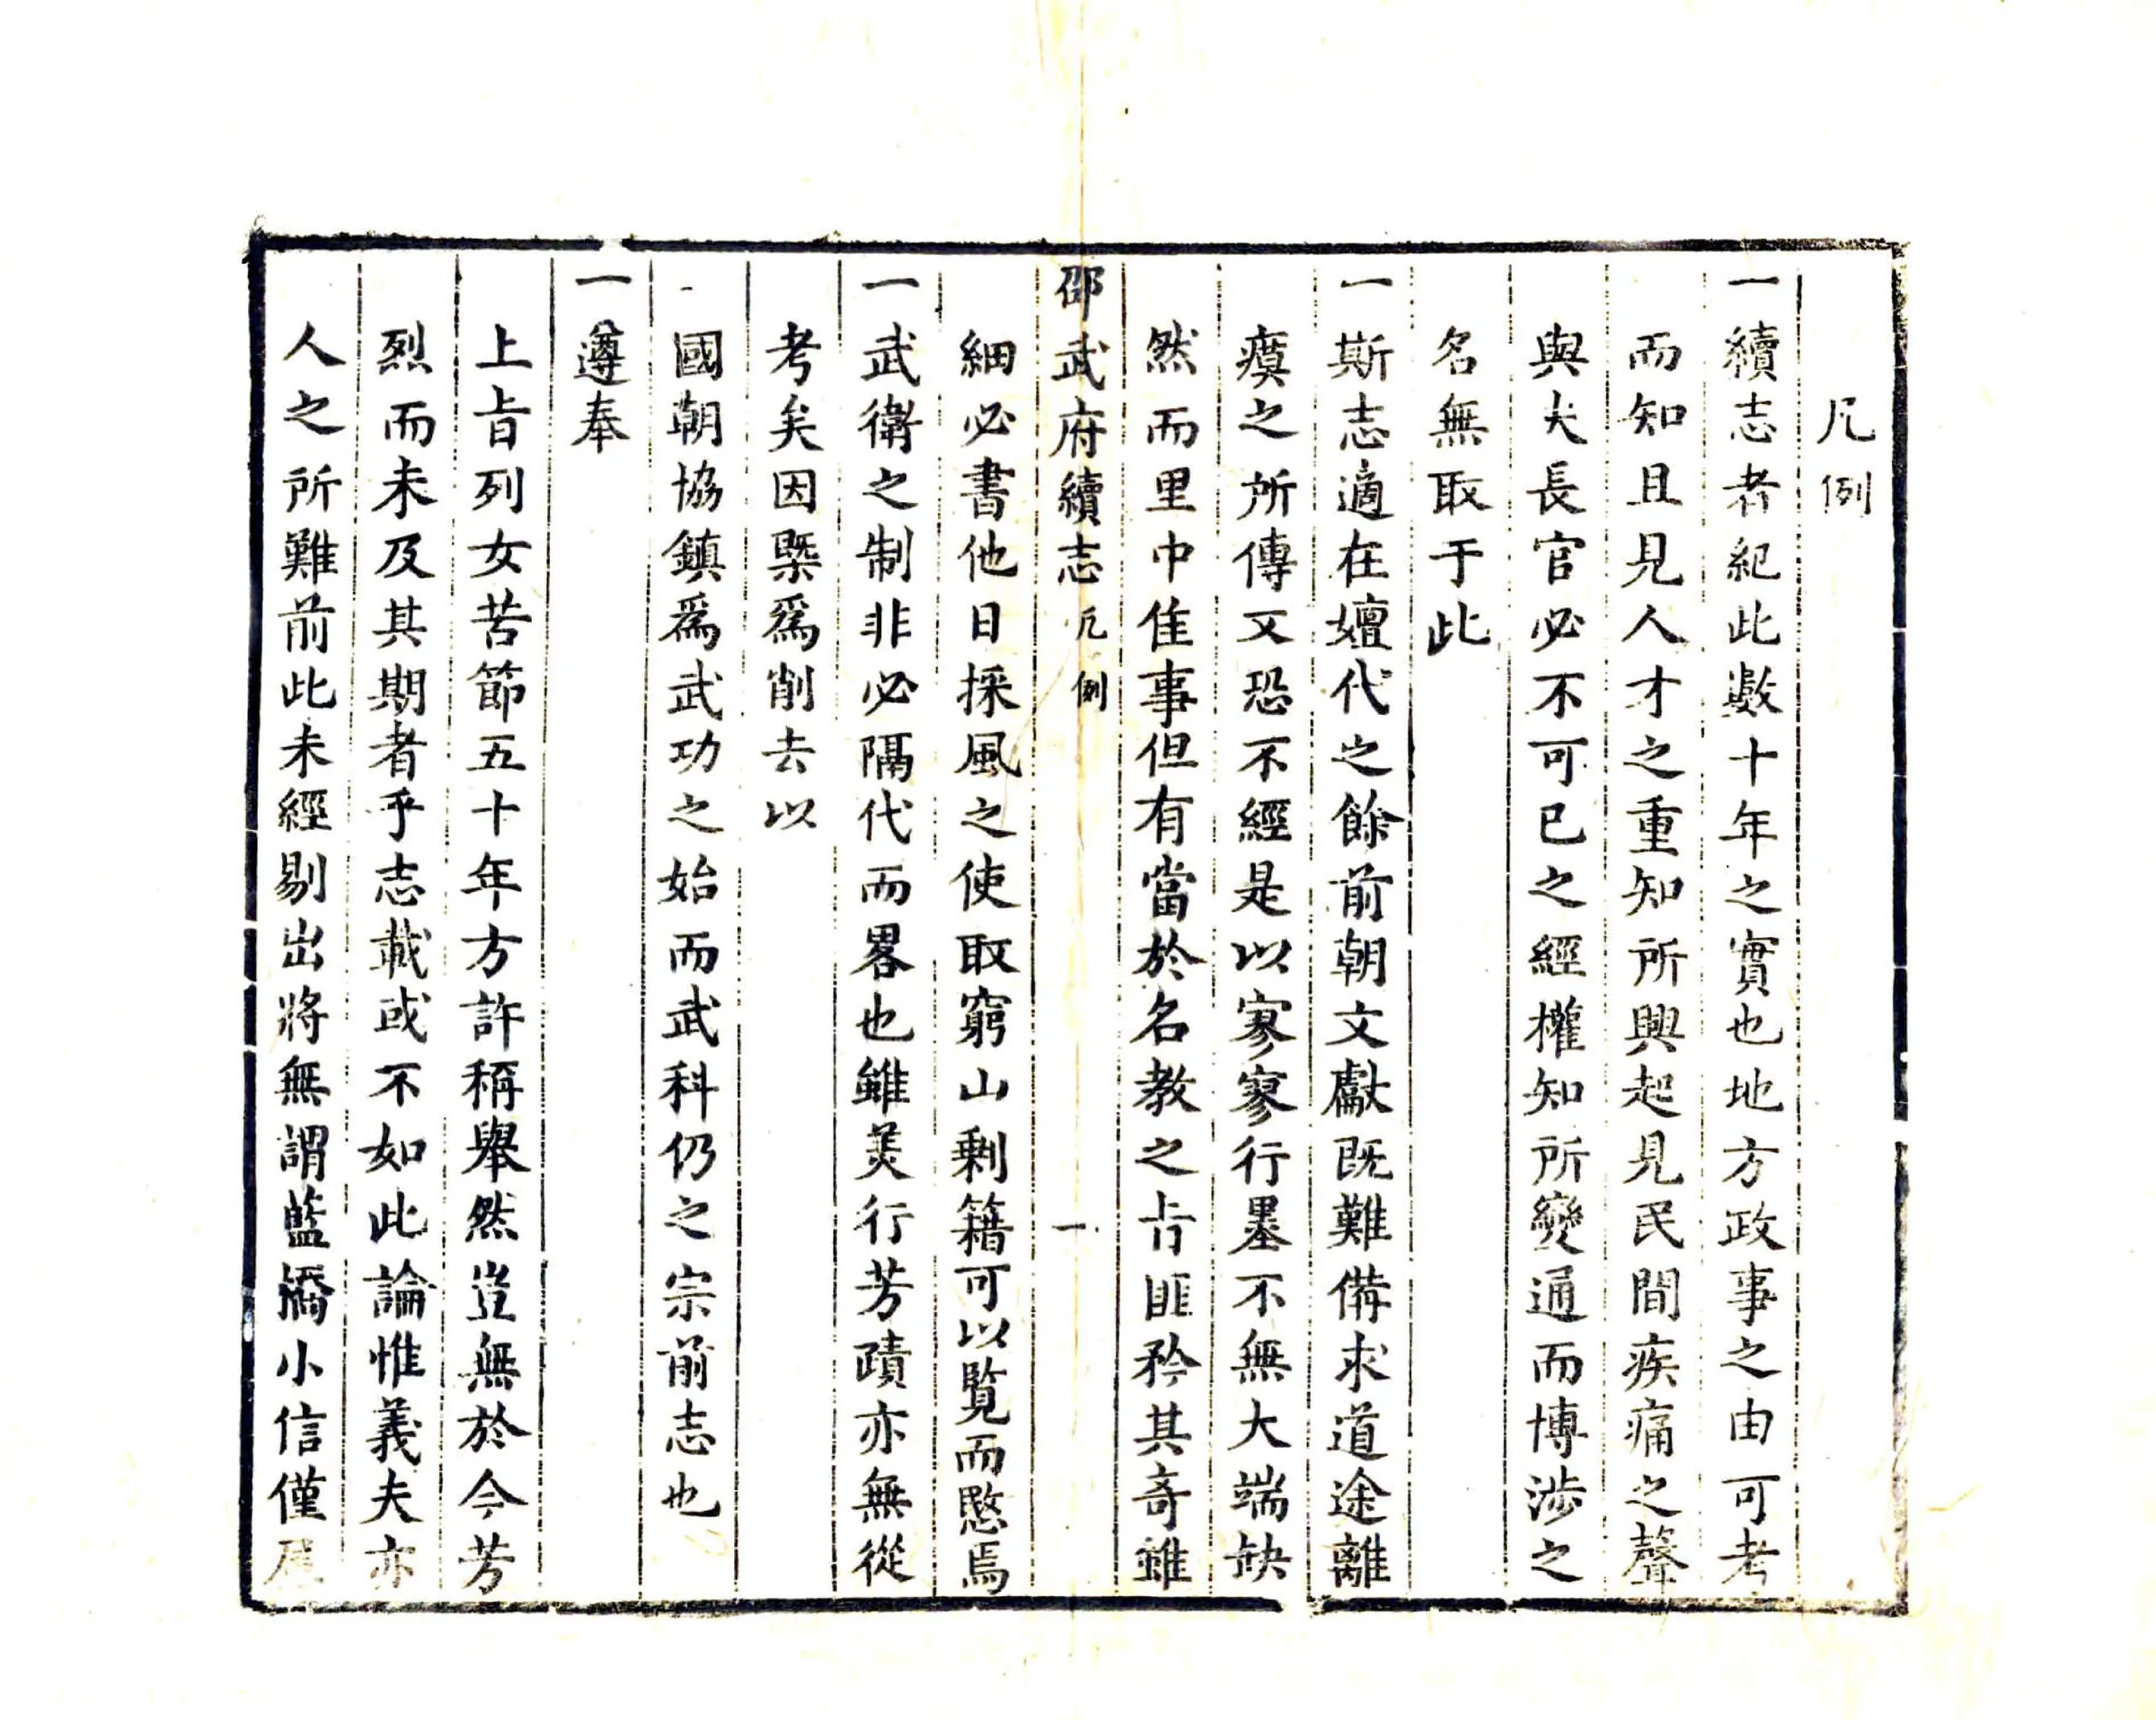 凡例
一續志者紀此數十年之實也地方政事之由可考
而知且見人才之重知所興起見民間疾痛之聲
與夫長官必不可已之經權知所變通而博涉之
名無取于此
一斯志適在嬗代之餘前朝文獻既難備求道途離
瘼之所傳又恐不經是以寥寥行墨不無大端缺
然而里巾隹事但有當於名教之㫖匪矜其奇雖
邵武府續志 凡例 一
細必書他日採風之使取窮山剩籍可以覧而愍焉
一武衛之制非必隔代而畧也雖美行芳蹟亦無從
考矣因槩爲削去以
國朝協鎮爲武功之始而武科仍之宗前志也
一遵奉
上㫖列女苦節五十年方許稱舉然豈無於今芳
烈而未及其期者乎志載或不如此論惟義夫亦
人之所難前此未經剔出將無謂藍橋小信僅